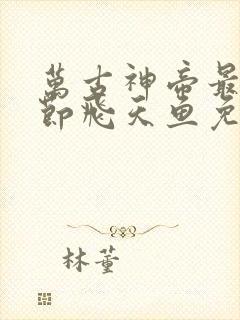 萬古神帝最
節飛天魚免
林董